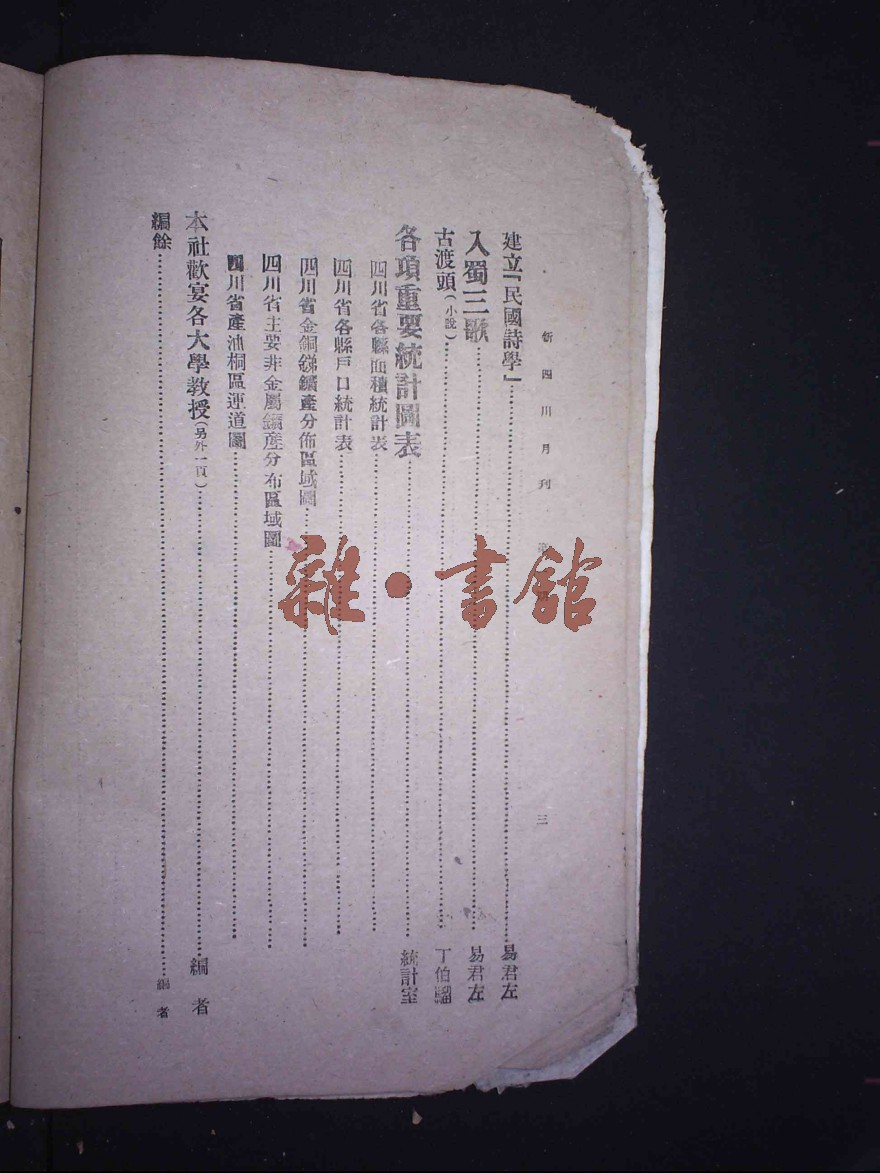 新四川月刊 三
建立「民國詩學」……易君左
入蜀三歌……易君左
古渡頭（小說）……丁伯騮
各項重要統計圖表……統計室
四川省各縣面積統計表……
四川省各縣戶口統計表……
四川省金銅銻鑛產分佈區域圖……
四川省主要非金屬鑛產分布區域圖……
四川省產油桐區運道圖……
本社歡宴各大學教授（另外一頁）……編者
編餘……編者
雜·書館